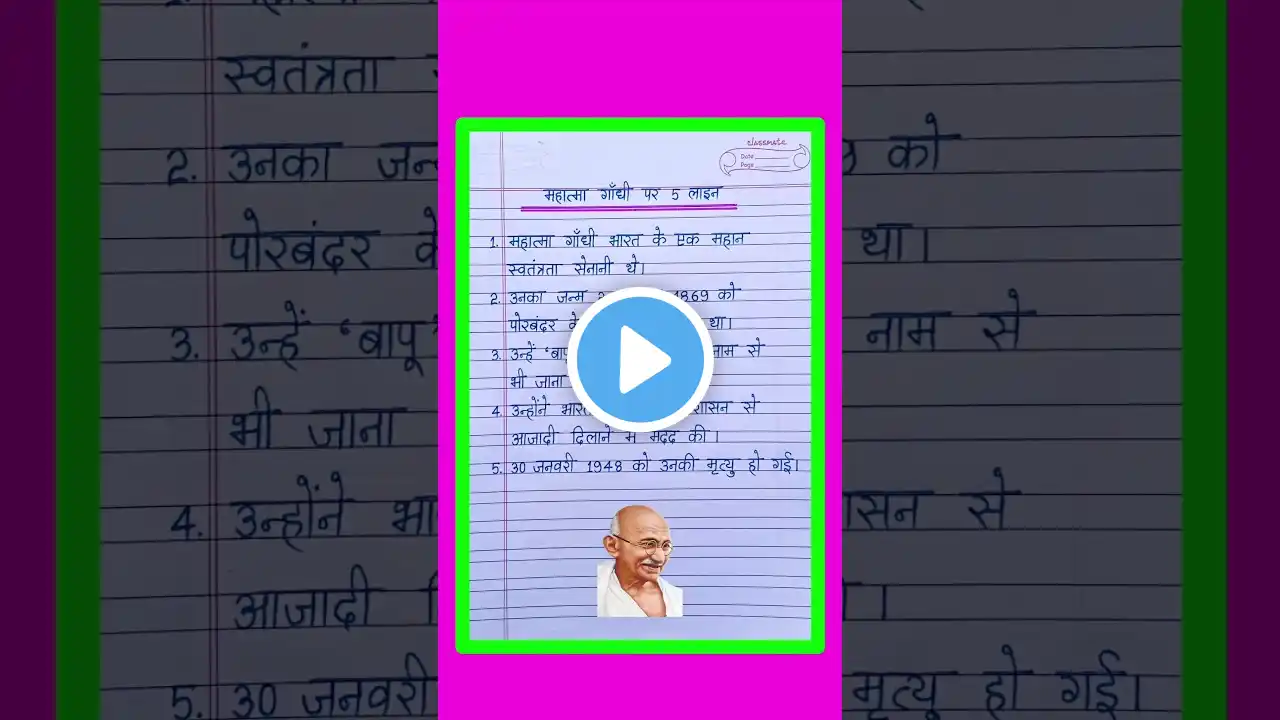 classmate
Date
Page
महात्मा गाँधी पर 5 लाइन
1. महात्मा गाँधी भारत के एक महान
स्वतंत्रता सेनानी थे।
2. उनका जन्म 1869 को
पोरबंदर था।
3. उन्हें 'बापू नाम से
भी जाना
4. उन्होंने शासन से
आजादी दिलाने में मदद की।
5. 30 जनवरी 1948 को उनकी मृत्यु हो गई।